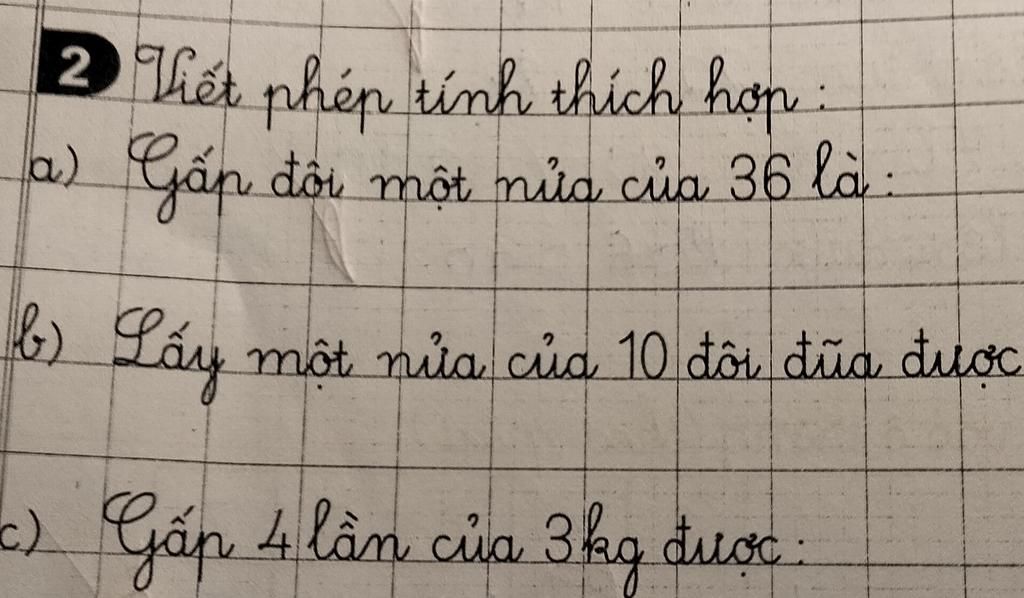 2 Viết phép tính thích hợp :
a) Gấp đôi một nửa của 36 là :
b) Lấy một nửa của 10 đôi đũa được
c) Gấp 4 lần của 3kg được :